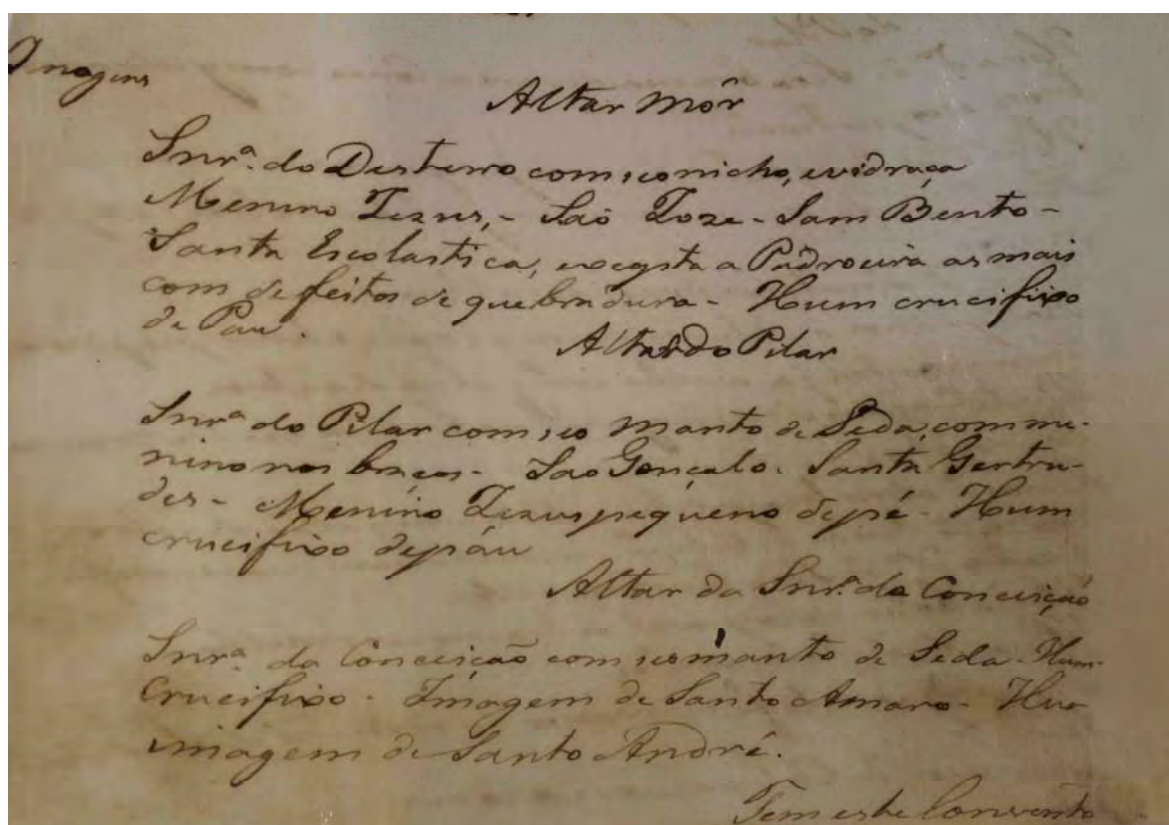 Imagens
Altar Môr
Snrª. do Desterro com seo nicho, evidraça
Menino Jezus, - Saõ Joze - Sam Bento -
Santa Escolastica, excepta a Padroeira as mais
com defeitos de quebradura - Hum crucifixo
de Pau.
Altar do Pilar
Snrª do Pilar com seo manto de Seda, com me-
nino nos braços - Sao Gonçalo. Santa Gertru-
des - Menino Jezus pequeno de pé - Hum
crucifixo de páu
Altar da Snrª. da Conceição
Snrª. da Conceição com seo manto de Seda - Hum
Crucifixo - Imagem de Santo Amaro - Hua
imagem de Santo André.
Tem este Convento